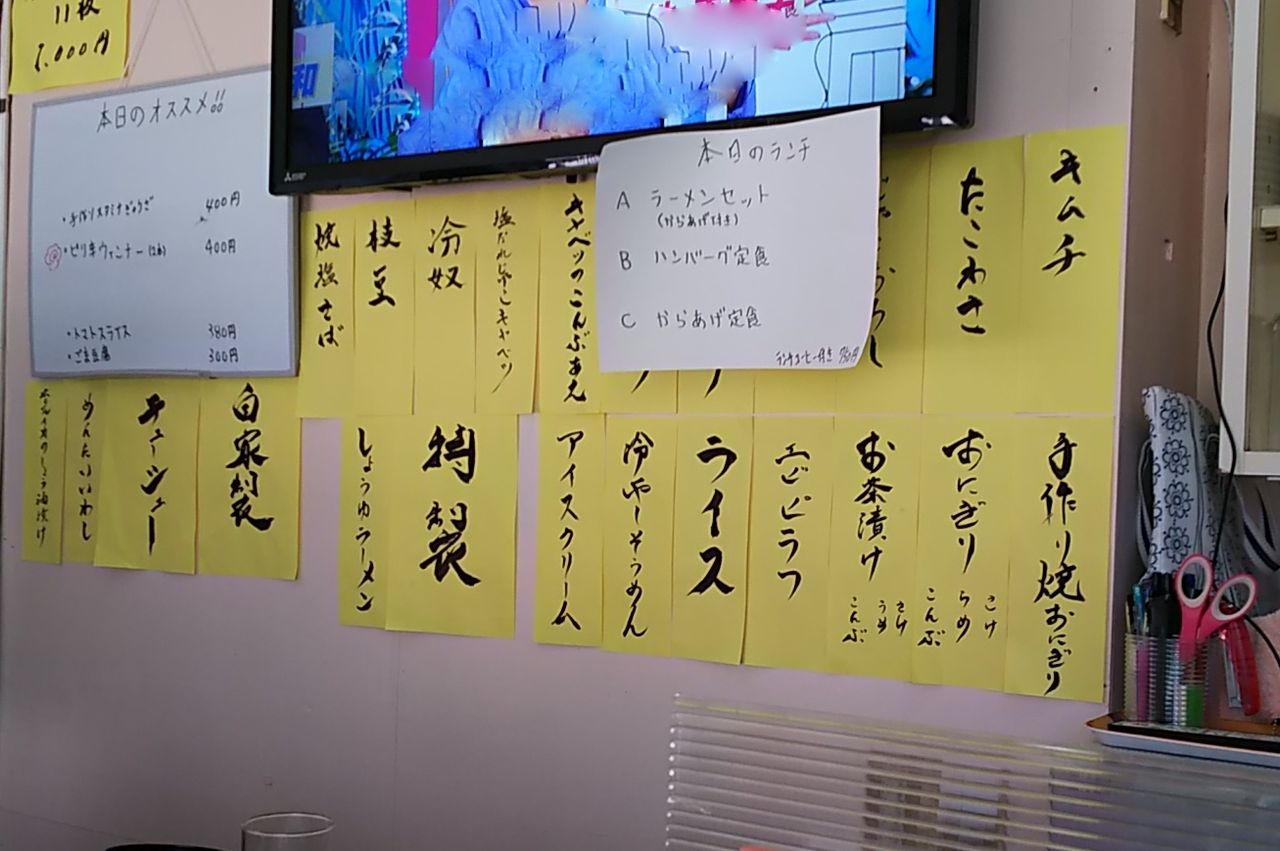 11枚
7,000円
本日のオススメ!!
・手作りスタミナぎょうざ 400円
・ピリ辛ウィンナー(2本) 400円
・トマトスライス 380円
・ごま豆腐 300円
和
MITSUBISHI
本日のランチ
A ラーメンセット
(からあげ付き)
B ハンバーグ定食
C からあげ定食
キムチ
たこわさ
おろし
キャベツのこんぶあえ
塩だれ キャベツ
冷奴
枝豆
焼塩さば
手作り焼おにぎり
おにぎり
さけ
うめ
こんぶ
お茶漬け
さけ
うめ
こんぶ
エビピラフ
ライス
冷やしそうめん
アイスクリーム
特製
しょうゆラーメン
自家製
チャーシュー
めんたいいわし
しょう油漬け